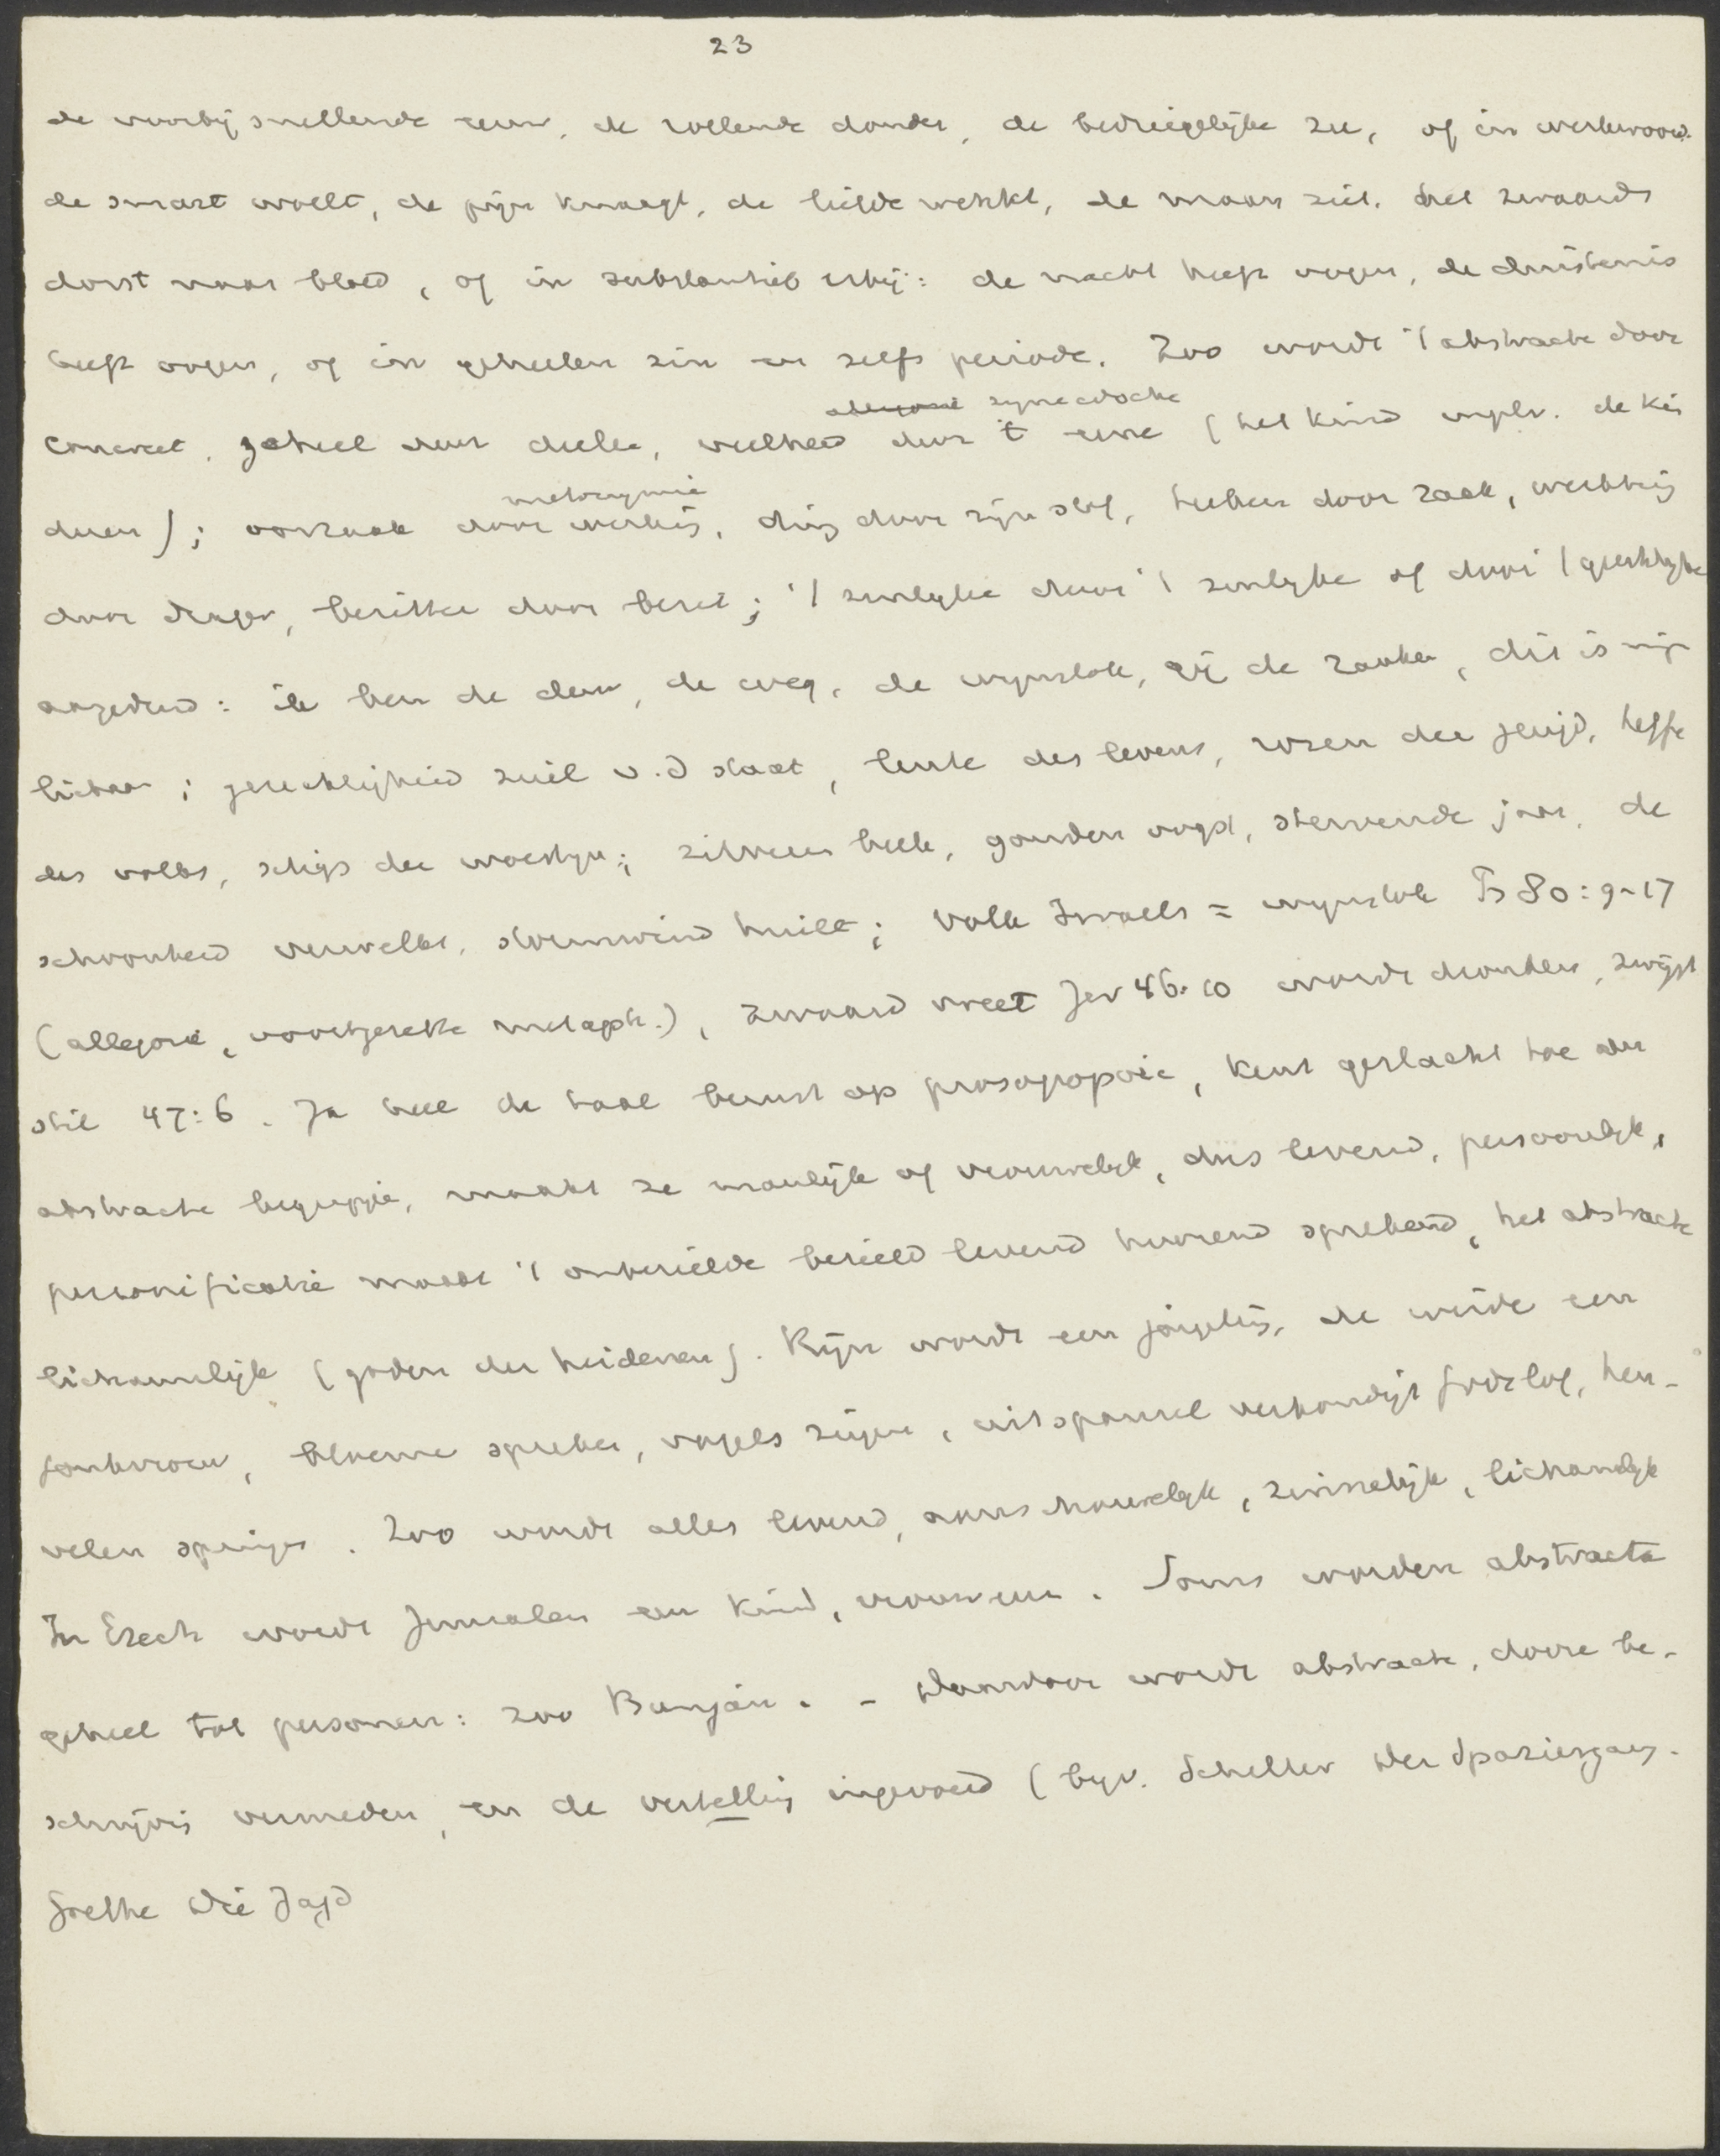 23
de voorbij snellende eeuw, de rollende donder, de bedriegelijke zee, of in werkwoord.
de smart woelt, de pijn knaagt, de liefde wekkt, de maan ziet. het zwaard
dorst naar bloed, of in substantief erbij: de nacht heeft oogen, de duisternis
heeft oogen, of in geheelen zin en zelfs periode. Zoo wordt 't abstracte door
allegorie synecdoche
concreet, geheel door deelen, veelheid door 't eene (het kind mplv. de kin
metonymie
deren); oorzaak door werking, ding door zijn stof, teeken door zaak, werktuig
door drager, bezitter door bezit; 't zinlijke door 't zinlijke of door 't geestelijke
aangeduid: ik ben de deur, de weg, de wijnstok, gij de ranken, dit is mijn
lichaam; gerechtigheid zuil v.d staat, lente des levens, rozen der jeugd, heffe
des volks, schip der woestijn; zilveren beek, gouden oogst, stervende jaar, de
schoonheid verwelkt, stormwind huilt; Volk Israels = wijnstok Ps 80:9-17
(allegorie, voortgezette metaph.), zwaard vreet Jer 46:10 wordt dronken, zwijgt
stil 47:6. Ja heel de taal berust op prosopopoie, kent geslacht toe aan
abstracte begrippen, maakt ze manlijk of vrouwelijk, dus levend, persoonlijk,
personificatie maakt 't onbezielde bezield levend hoorend sprekend, het abstracte
lichaamlijk (goden der heidenen). Rijn wordt een jongeling, de weide een
jonkvrouw, bloemen spreken, vogels zingen, uitspansel verkondigt Gods lof, heu-
velen springen. Zoo wordt alles levend, aanschouwelijk, zinnelijk, lichamelijk
In Ezech wordt Jeruzalem een kind, vrouw enz. Soms worden abstracta
geheel tot personen: zoo Bunjan. - Daardoor wordt abstracte, dorre be-
schrijving vermeden, en de vertelling ingevoerd (bijv. Schiller Der Spaziergang.
Goethe Die Jagd